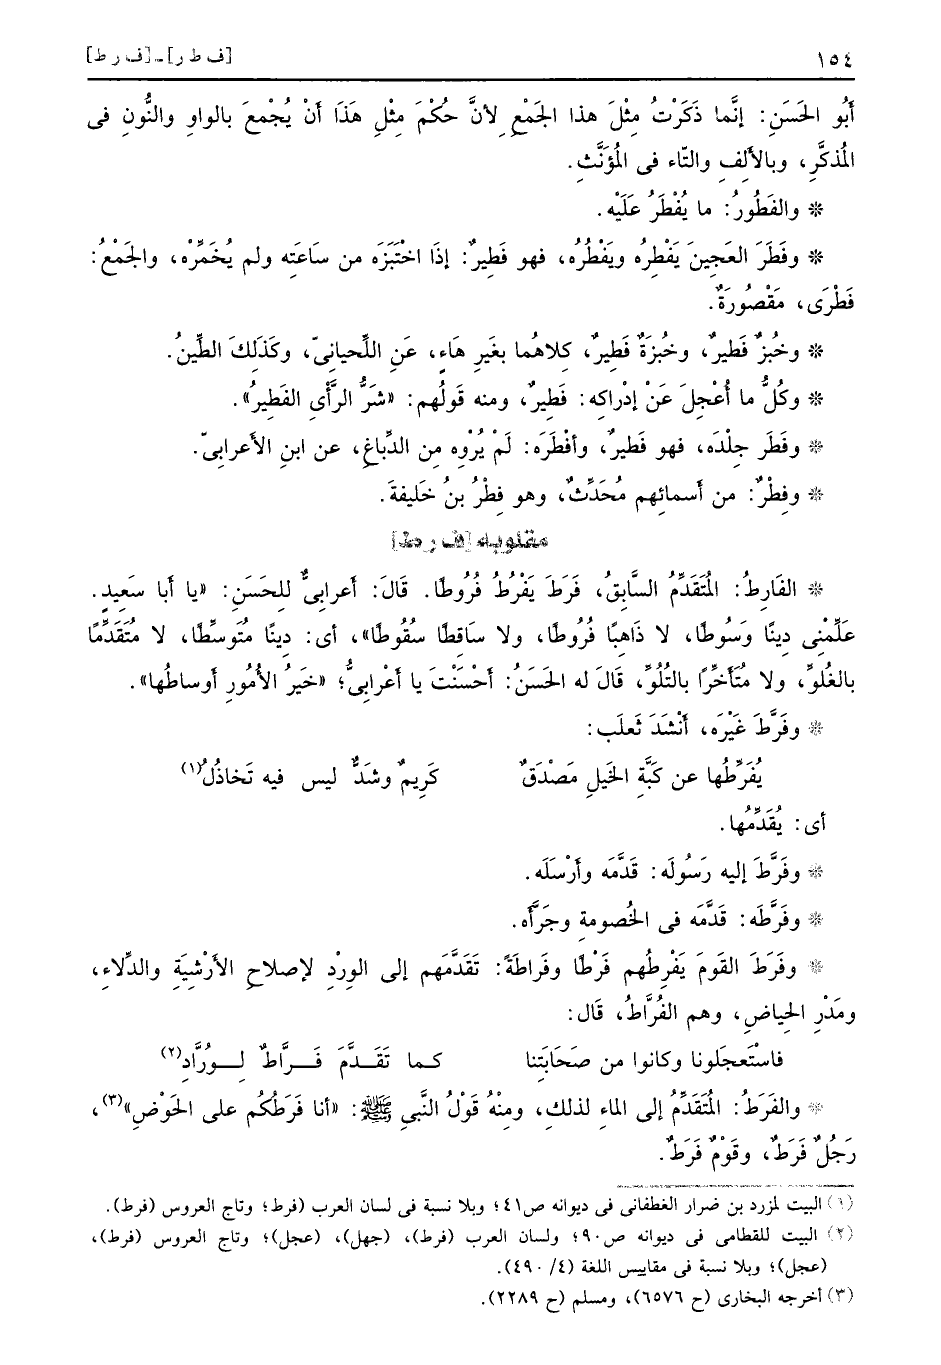 ١٥٤ [ف ط ر]ـ[ف ر ط]
أَبُو الحَسَنِ: إنَّما ذَكَرْتُ مِثْلَ هذا الجَمْعِ لأنَّ حُكْمَ مِثْلِ هَذَا أنْ يُجْمعَ بالواوِ والنُّونِ فى
المُذكَّرِ، وبالألِفِ والتّاء فى المُؤَنَّثِ.
* والفَطُورُ: ما يُفْطَرُ عَلَيْه.
* وفَطَرَ العَجِينَ يَفْطِرُه ويَفْطُرُه، فهو فَطِيرٌ: إذَا اخْتَبَزَه من سَاعَتِه ولم يُخَمِّرْه، والجَمْعُ:
فَطْرَى، مَقْصُورَةٌ.
* وخُبزٌ فَطيرٌ، وخُبزَةٌ فَطِيرٌ، كِلاهُما بغَيرِ هَاءٍ، عَنِ اللِّحيانىّ، وكَذَلِكَ الطِّينُ.
* وكُلُّ ما أُعْجِلَ عَنْ إدْراكِه: فَطِيرٌ، ومنه قَولُهم: «شَرُّ الرَّأْىِ الفَطِيرُ».
* وفَطَر جِلْدَه، فهو فَطِيرٌ، وأفْطَرَه: لَمْ يُرْوِه مِن الدِّباغِ، عن ابنِ الأعرابىّ.
* وفِطْرٌ: من أسمائهم مُحَدِّثٌ، وهو فِطْرُ بنُ خَلِيفةَ.
مقلوبه [ف ر ط]
* الفَارِطُ: المُتَقَدِّمُ السَّابِقُ، فَرَطَ يَفْرُطُ فُرُوطًا. قَالَ: أعرابىٌّ للحَسَنِ: «يا أبا سَعِيدٍ.
عَلِّمْنِى دِينًا وَسُوطًا، لا ذَاهِبًا فُرُوطًا، ولا سَاقِطًا سُقُوطًا»، أى: دِينًا مُتَوسِّطًا، لا مُتَقَدِّمًا
بالغُلوِّ، ولا مُتَأخِّرًا بالتُلُوِّ، قَالَ له الحَسَنُ: أحْسَنْتَ يا أعْرابىُّ؛ «خَيرُ الأمُورِ أوساطُها».
* وفَرَّطَ غَيْرَه، أنْشَدَ ثَعلَب:
يُفَرِّطُها عن كَبَّةِ الخَيلِ مَصْدَقٌ كَرِيمٌ وشَدٌّ ليس فيه تَخاذُلُ(١)
أى: يُقَدِّمُها.
* وفَرَّطَ إليه رَسُولَه: قَدَّمَه وأرْسَلَه.
* وفَرَّطَه: قَدَّمَه فى الخُصومةِ وجَرَّأه.
* وفَرَطَ القَومَ يَفْرِطُهم فَرْطًا وفَراطَةً: تَقَدَّمَهم إلى الوِرْدِ لإصلاحِ الأرْشِيَةِ والدِّلاءِ،
ومَدْرِ الحِياضِ، وهم الفُرَّاطُ، قَال:
فاسْتَعجَلونا وكانوا من صَحَابَتِنا كـما تَقَـدَّمَ فُـرَّاطٌ لِــوُرَّادِ(٢)
* والفَرَطُ: المُتَقَدِّمُ إلى الماءِ لذلك، ومِنْهُ قَوْلُ النَّبى ﷺ: «أنا فَرَطُكُم على الحَوْضِ»(٣)،
رَجُلٌ فَرَطٌ، وقَوْمٌ فَرَطٌ.
(١) البيت لمزرد بن ضرار الغطفانى فى ديوانه ص٤١؛ وبلا نسبة فى لسان العرب (فرط)؛ وتاج العروس (فرط).
(٢) البيت للقطامى فى ديوانه ص٩٠؛ ولسان العرب (فرط)، (جهل)، (عجل)؛ وتاج العروس (فرط)،
(عجل)؛ وبلا نسبة فى مقاييس اللغة (٤/ ٤٩٠).
(٣) أخرجه البخارى (ح ٦٥٧٦)، ومسلم (ح ٢٢٨٩).